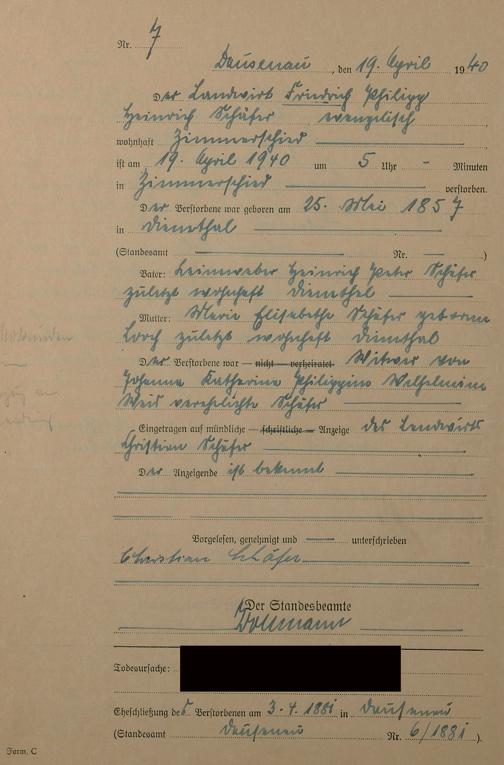 Nr. 7
Dausenau, den 19. April 1940
Der Landwirt Friedrich Philipp
Heinrich Schäfer evangelisch
wohnhaft Zimmerschied
ist am 19. April 1940 um 5 Uhr - Minuten
in Zimmerschied verstorben.
Der Verstorbene war geboren am 25. Mai 1857
in Dienethal
(Standesamt Nr. )
Vater: Leinweber Heinrich Peter Schäfer
zuletzt wohnhaft Dienethal
Mutter: Marie Elisabethe Schäfer geborene
zuletzt wohnhaft Dienethal
Der Verstorbene war — nicht — verheiratet Witwer von
Johanna Katharina Philippine Wilhelmine
Weis verehelichte Schäfer
Eingetragen auf mündliche — schriftliche — Anzeige des Landwirts
Christian Schäfer
Der Anzeigende ist bekannt
Vorgelesen, genehmigt und unterschrieben
Christian Schäfer
Der Standesbeamte
Todesursache:
Eheschließung des Verstorbenen am 3.4.1881 in Dausenau
(Standesamt Dausenau Nr. 6/1881).
Form. C